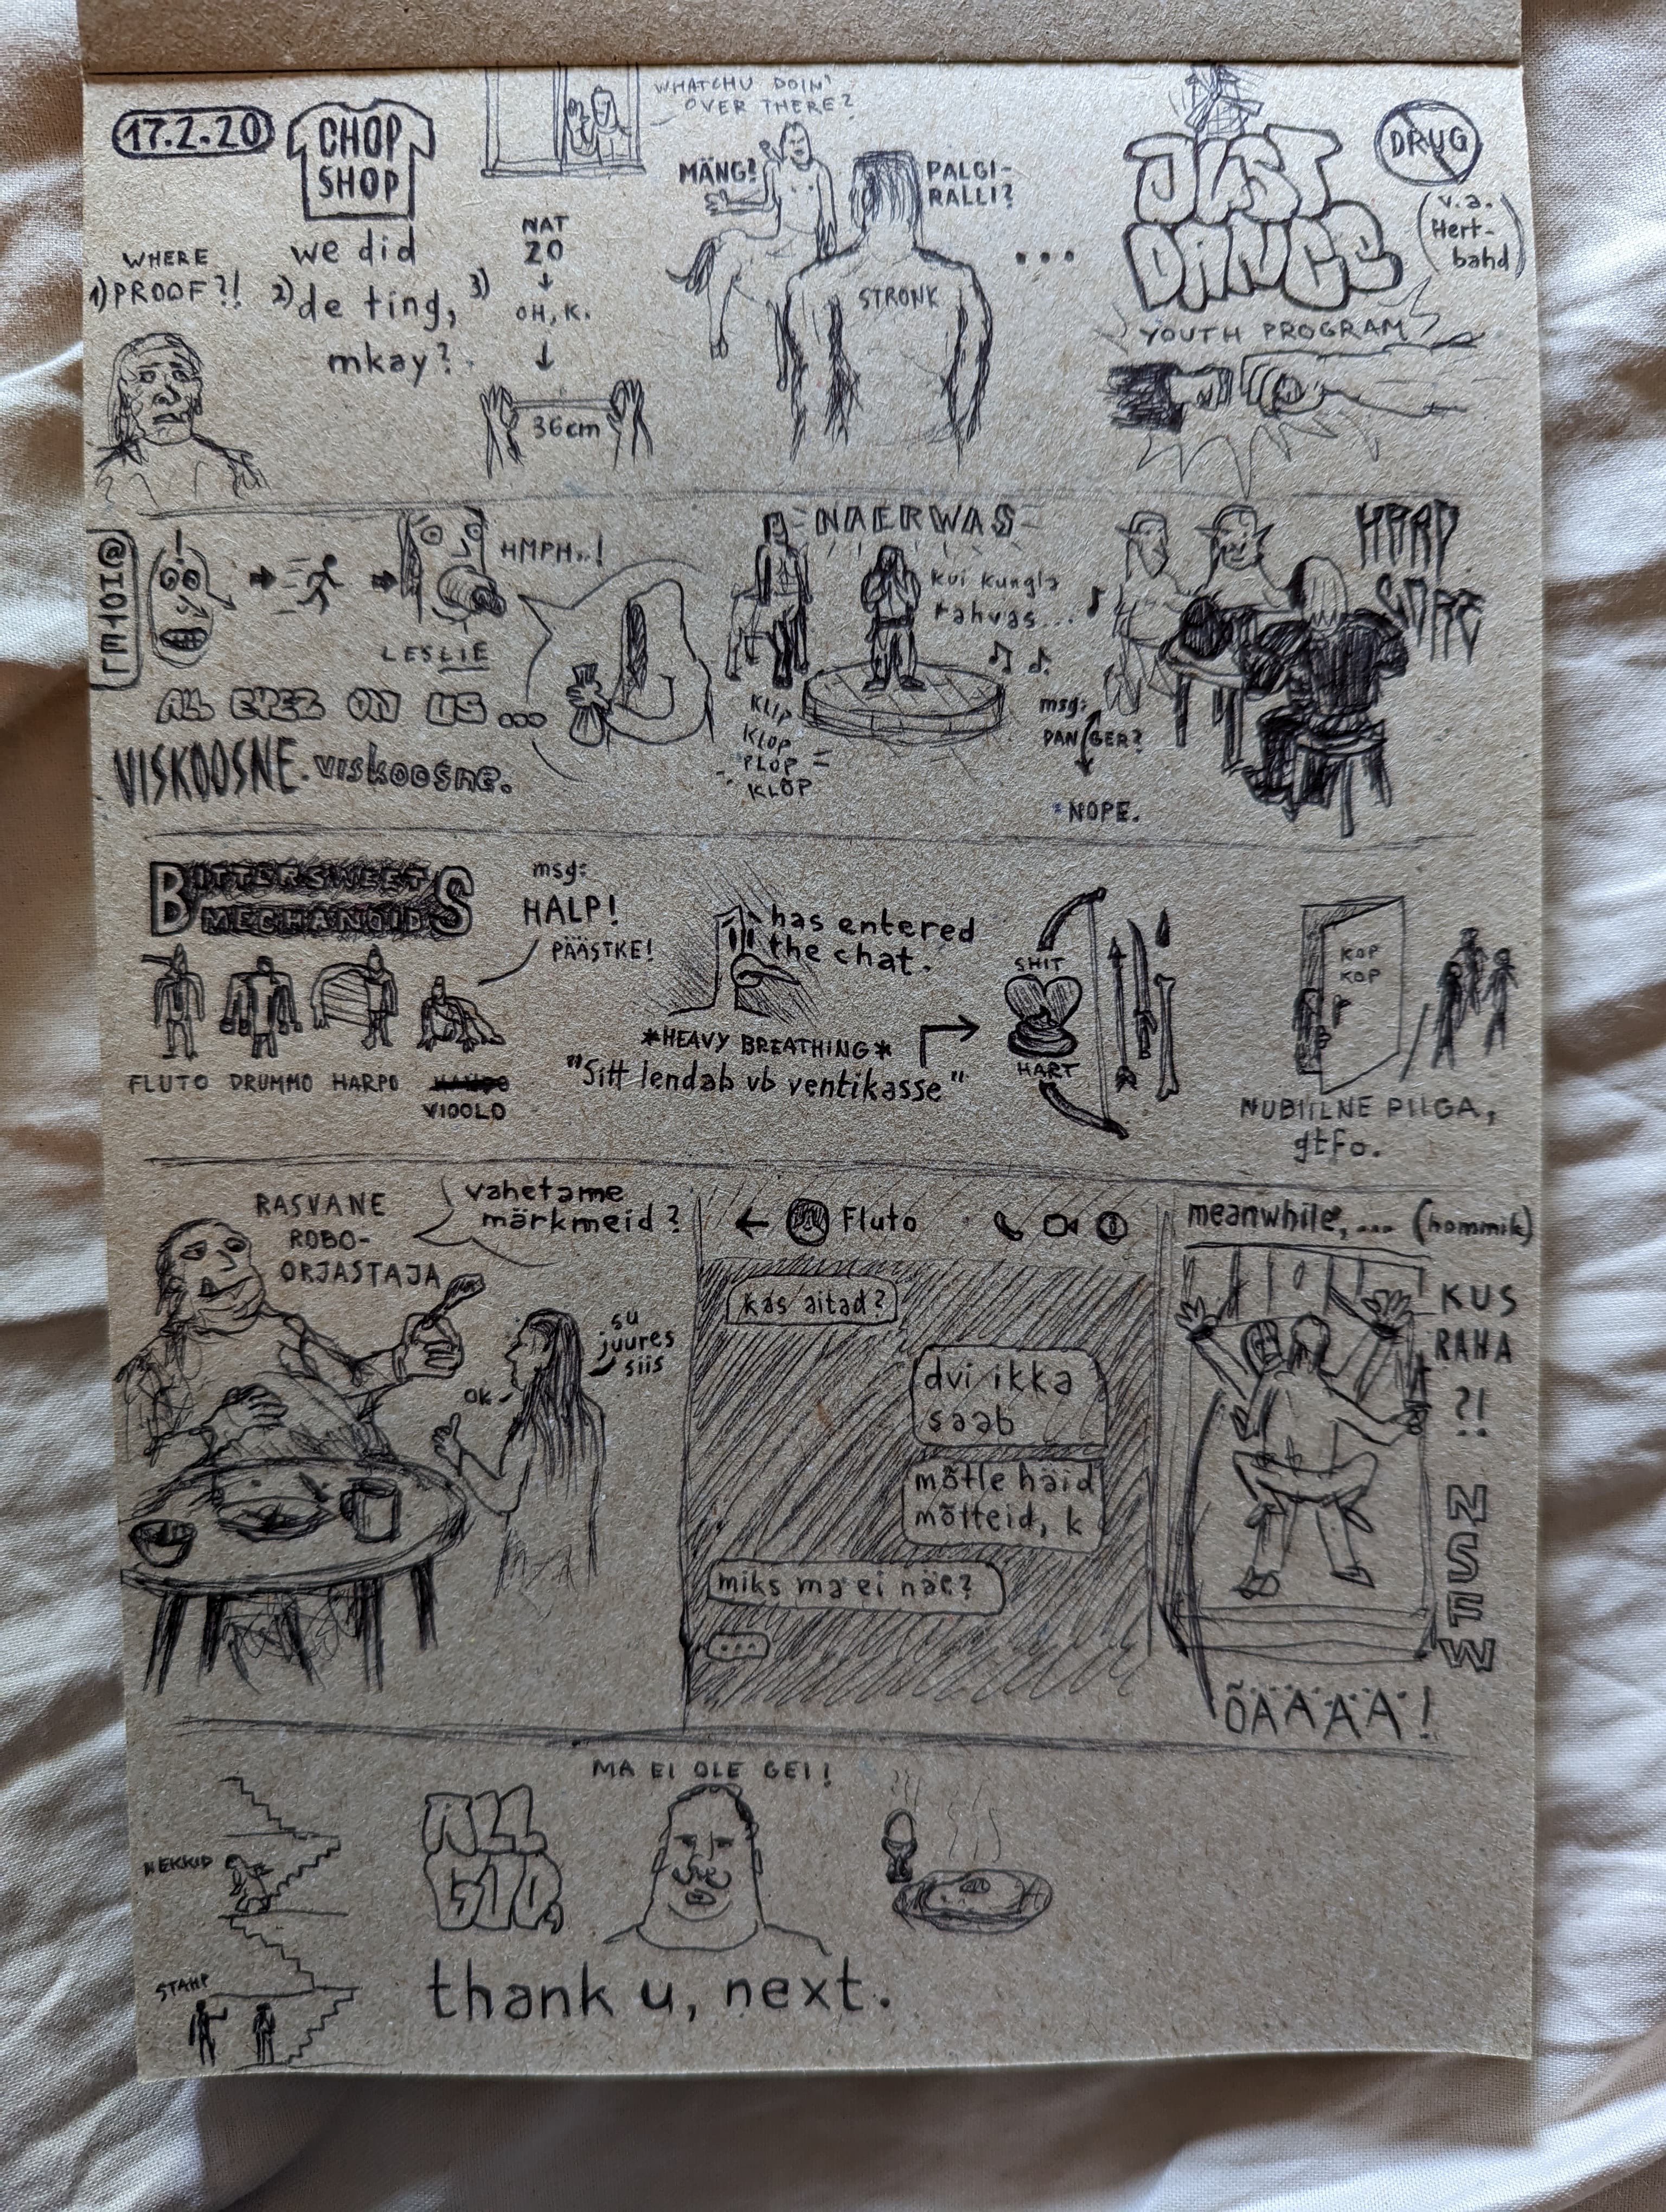 17.2.20
CHOP
SHOP
WHERE
1) PROOF?!
we did
2) de ting,
mkay?
3)
NAT
20
OH, K.
36cm
WHATCHU DOIN'
OVER THERE?
MÄNG?
PALGI-
RALLI?
STRONK
...
JUST
DANCE
DRUG
(v.a.
Hert-
bahd)
YOUTH PROGRAM
@HOTEL
!
HMPH..!
LESLIE
ALL EYEZ ON US...
VISKOOSNE. viskoosne.
NAERWAS
kui kungla
rahvas...
KLIP
KLOP
PLOP
KLOP
msg:
DANGER?
NOPE.
HARD
CORE
BITTERSWEET
MECHANOIDS
FLUTO DRUMMO HARPO
VIOOLO
msg:
HALP!
PÄÄSTKE!
has entered
the chat.
*HEAVY BREATHING*
"Sitt lendab vb ventikasse"
SHIT
HART
KOP
KOP
NUBIILNE PILGA,
gtfo.
RASVANE
ROBO-
ORJASTAJA
vahetame
märkmeid?
OK
su
juures
siis
Fluto
kas aitad?
dvi ikka
saab
mõtle häid
mõtteid, k
miks ma ei näe?
...
meanwhile,... (hommik)
KUS
RAHA
?!
NSFW
ÕÄÄÄÄ!
NEKKID
STAHP
ALL
GUD,
MA EI OLE GEI!
thank u, next.